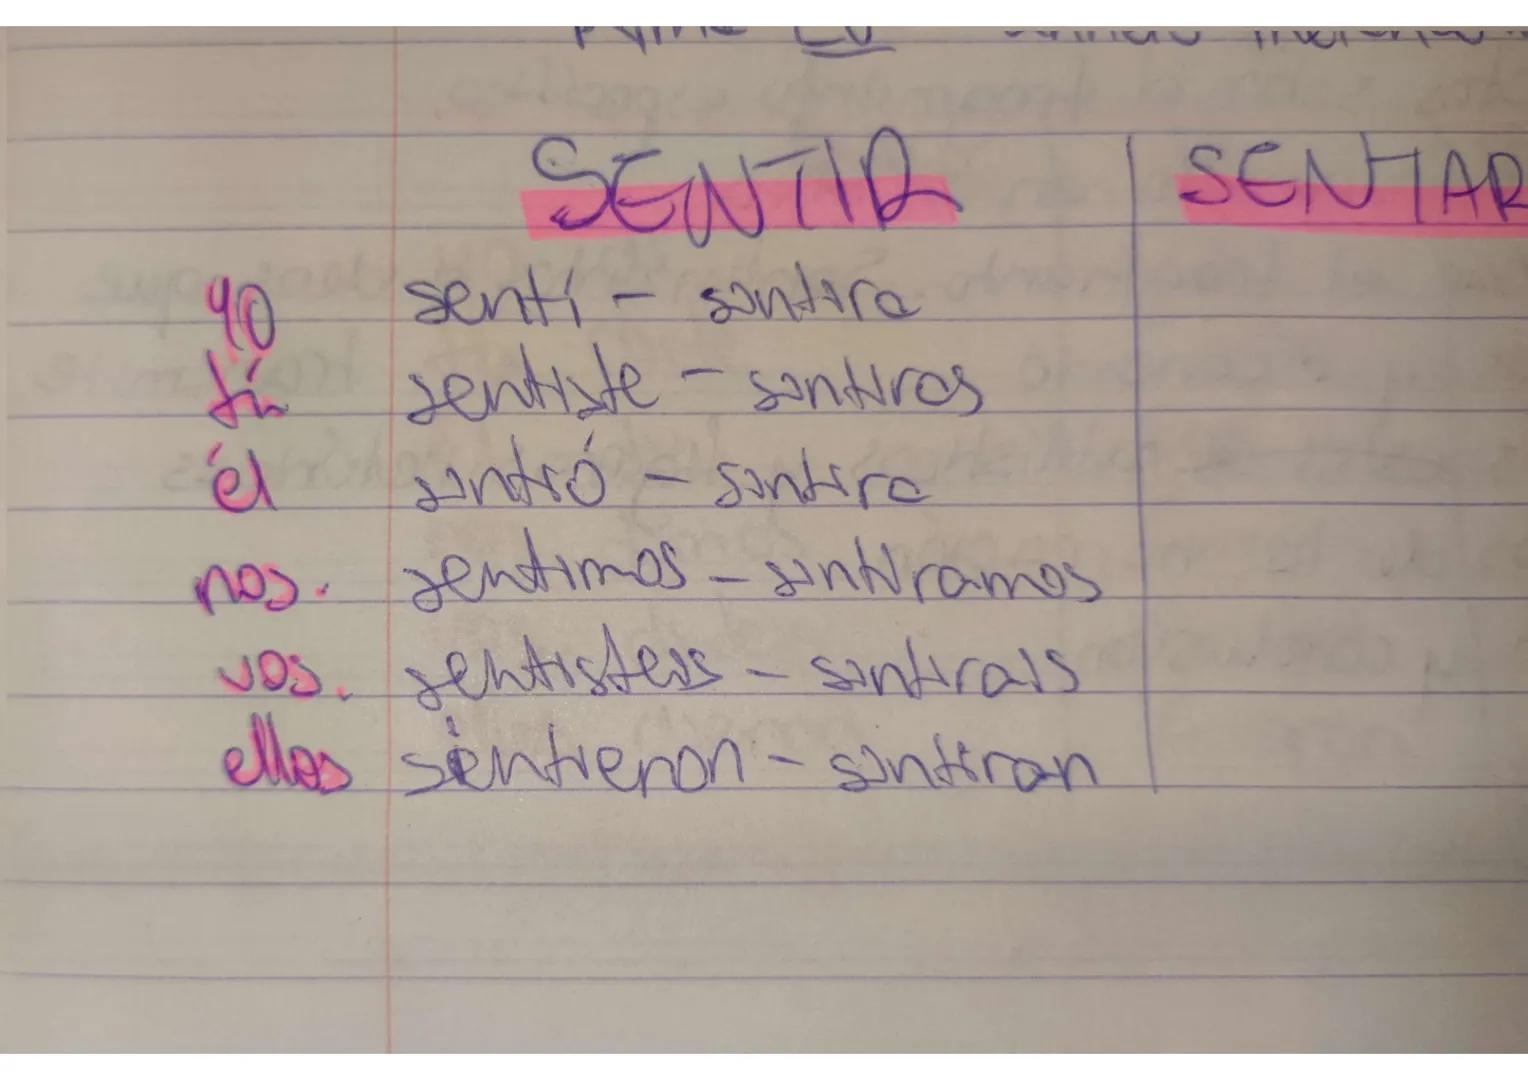 SENTIR SENTAR
yo sentí - sintira
tú sentiste - sintiras
él sintió - sintira
nos. sentimos - sintiramos
vos. sentisteis - sintirais
ellos sintieron - sintiran